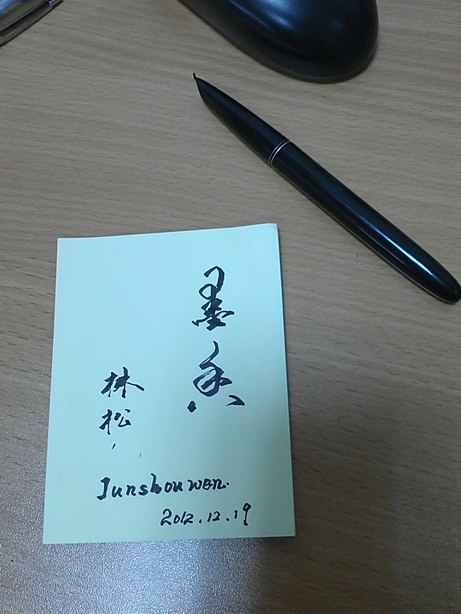 墨香
林松
Junshou wen.
2012.12.19